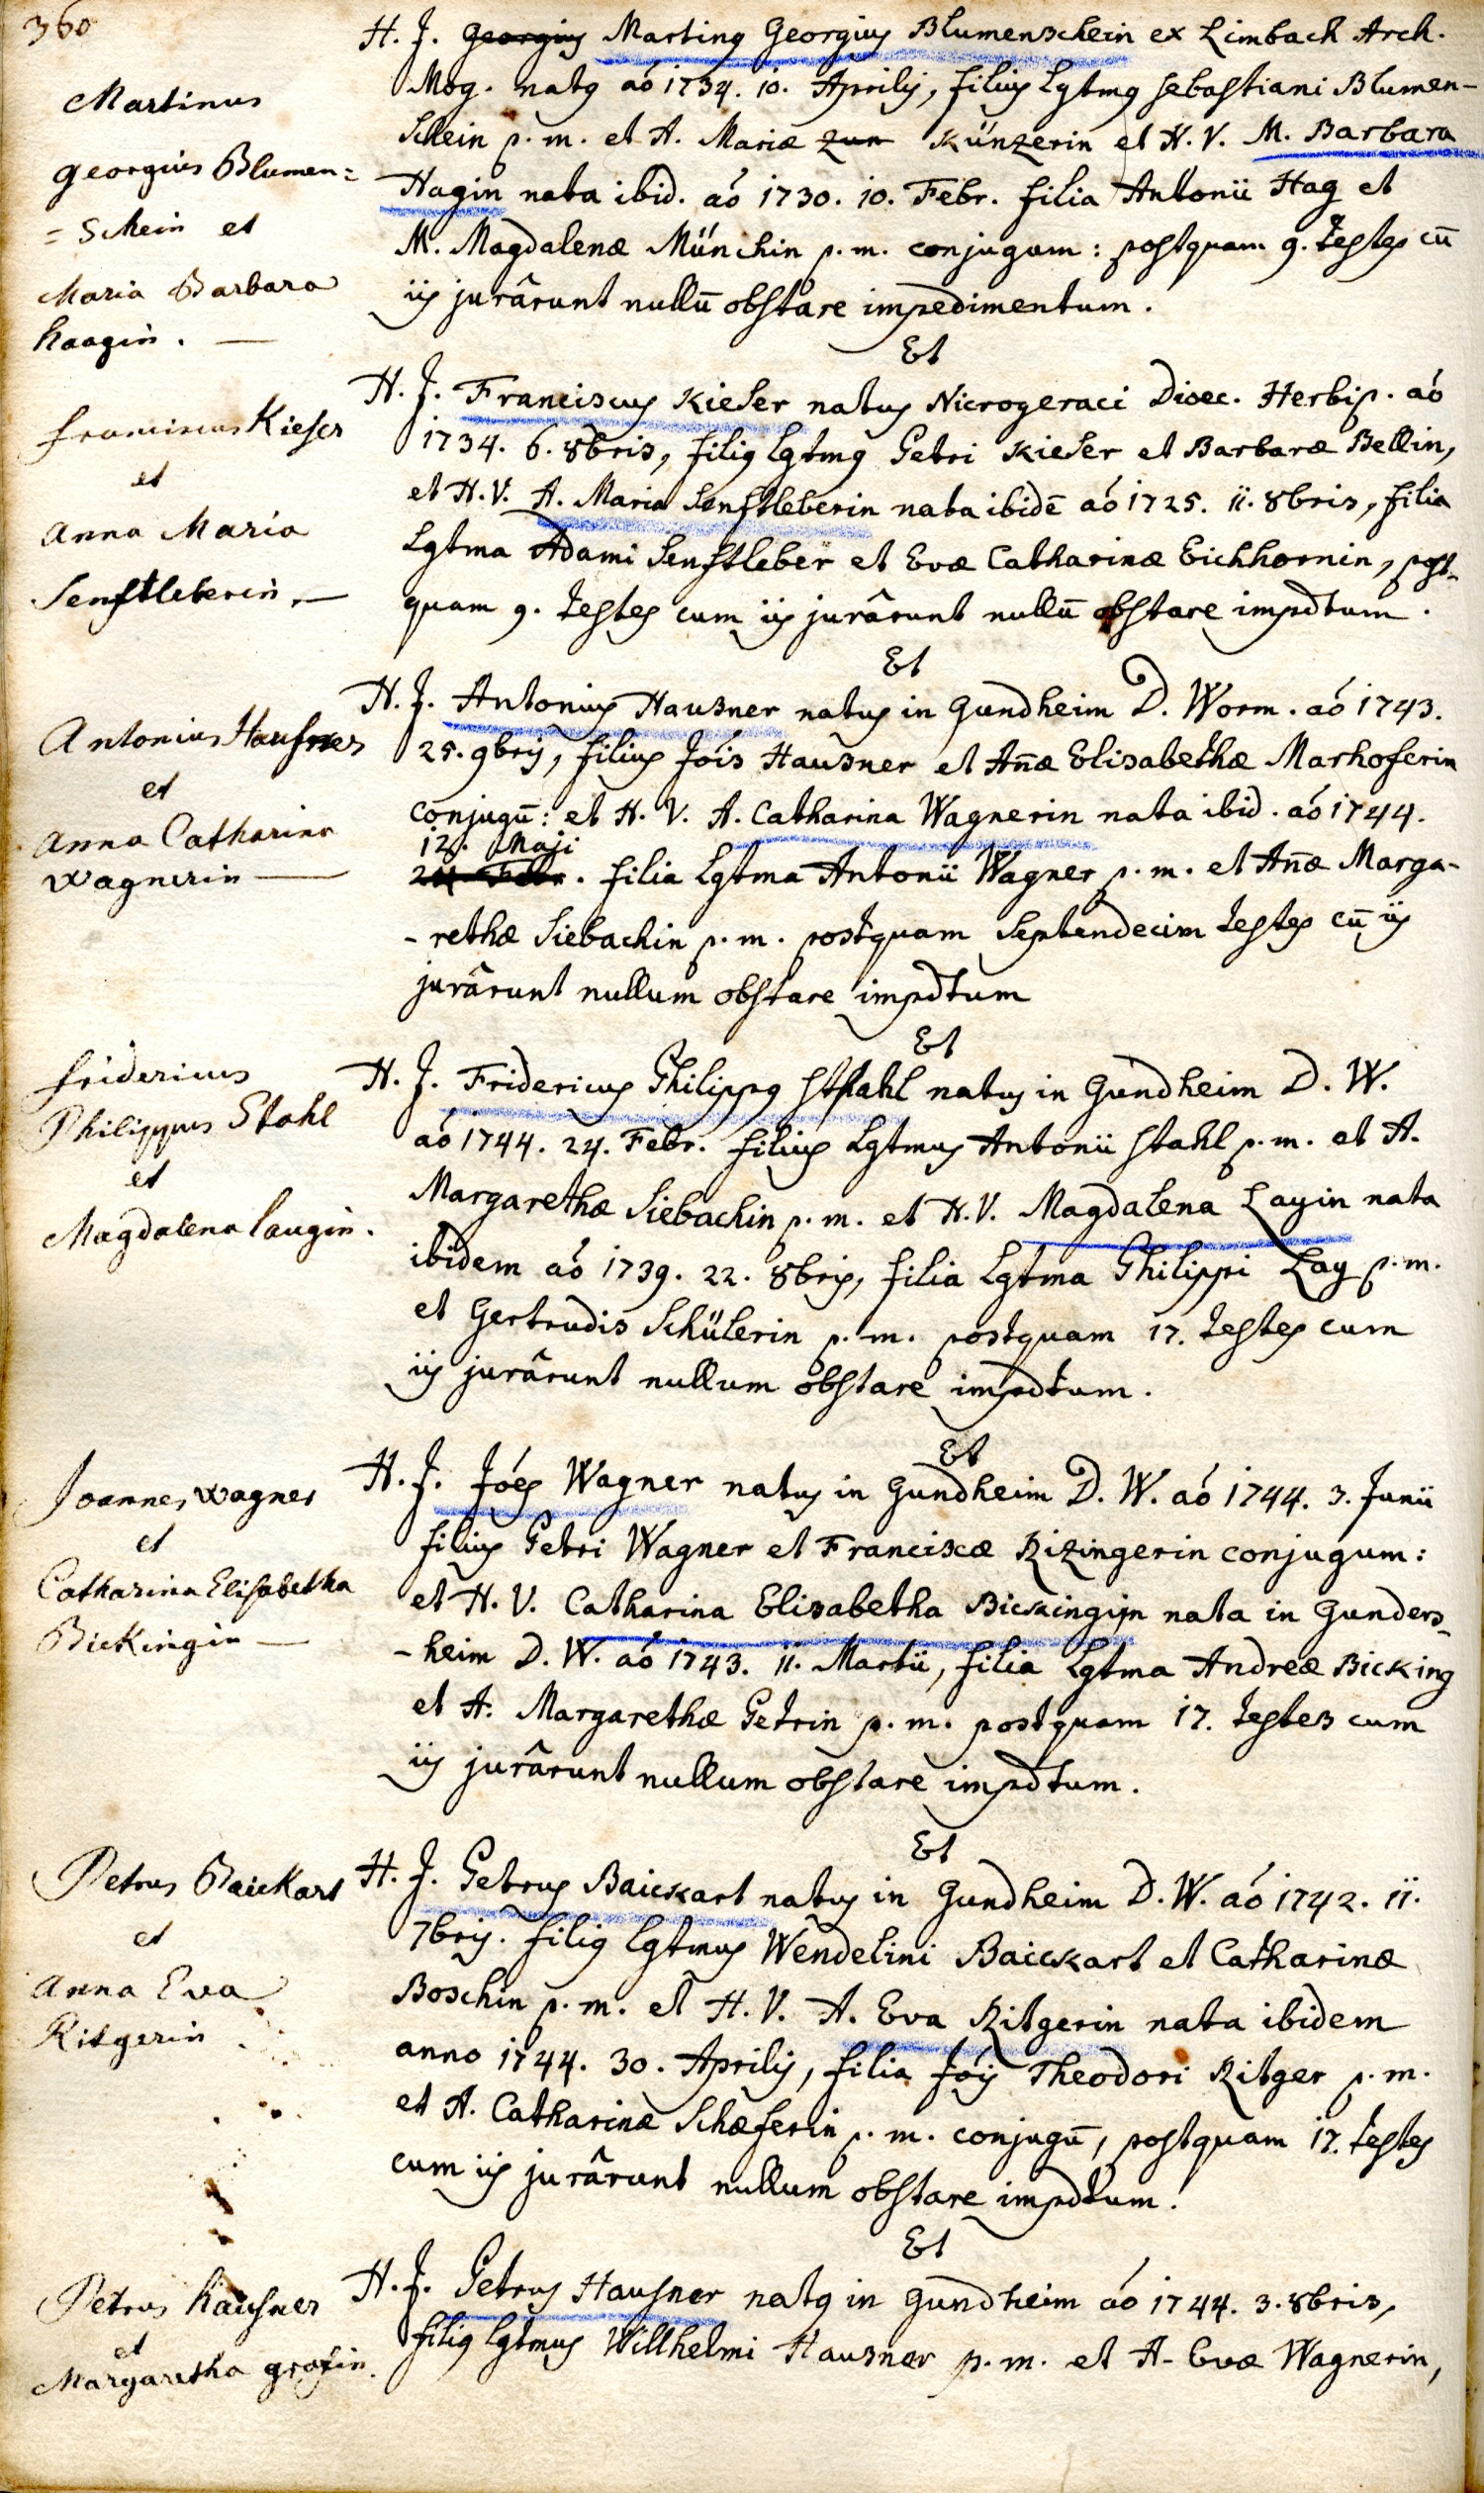 360
Martinus
georgius Blumen=
=schein et
Maria Barbara
haagin.
H. J. Georgius Martinꝰ Georgius Blumenschein ex Limbach Arch.
Mog. natꝰ aó 1734. 10. Aprilis, filius Lgtmꝰ Sebastiani Blumen-
schein p. m. et A. Mariæ zun Künzerin et H. V. M. Barbara
Hagin nata ibid. aó 1730. 10. Febr. filia Antonii Hag et
M. Magdalenæ Münchin p. m. conjugum: postquam 9. testes cū
iis jurârunt nullū obstare impedimentum.
Et
franciscus Kieser
et
Anna Maria
Senftleberin.
H. J. Franciscus Kieser natus Nicrogeraci Dioec. Herbip. aó
1734. 6. 8bris, filiꝰ Lgtmꝰ Petri Kieser et Barbaræ Bellin,
et H. V. A. Maria Senftleberin nata ibidē aó 1725. 11. 8bris, filia
Lgtma Adami Senftleber et Evæ Catharinæ Eichhornin, post-
quam 9. testes cum iis jurârunt nullū obstare impdtum.
Et
Antonius Hausner
et
Anna Catharina
Wagnerin
H. J. Antonius Hausner natus in Gundheim D. Worm. aó 1743.
25. 9bris, filius Jóis Hausner et Añæ Elisabethæ Marhoferin
conjugū: et H. V. A. Catharina Wagnerin nata ibid. aó 1744.
12. Maji
24. Febr. filia Lgtma Antonii Wagner p. m. et Añæ Marga-
-rethæ Siebachin p. m. postquam Septendecim testes cū iis
jurârunt nullum obstare impdtum
Et
fridericus
Philippus Stahl
et
Magdalena laugin.
H. J. Fridericus Philippꝰ Stahl natus in Gundheim D. W.
aó 1744. 24. Febr. filius Lgtmus Antonii Stahl p. m. et A.
Margarethæ Siebachin p. m. et H. V. Magdalena Layin nata
ibidem aó 1739. 22. 8bris, filia Lgtma Philippi Lay p. m.
et Gertrudis Schülerin p. m. postquam 17. testes cum
iis jurârunt nullum obstare impdtum.
Et
Joannes Wagner
et
Catharina Elisabetha
Bickingin
H. J. Jóes Wagner natus in Gundheim D. W. aó 1744. 3. Junii
filius Petri Wagner et Franciscæ Rizingerin conjugum:
et H. V. Catharina Elisabetha Bickingin nata in Gunders-
-heim D. W. aó 1743. 11. Martii, filia Lgtma Andreæ Bicking
et A. Margarethæ Petrin p. m. postquam 17. testes cum
iis jurârunt nullum obstare impdtum.
Et
Petrus Baickart
et
Anna Eva
Ritgerin
H. J. Petrus Baickart natus in Gundheim D. W. aó 1742. 11.
7bris. filiꝰ Lgtmus Wendelini Baickart et Catharinæ
Boschin p. m. et H. V. A. Eva Ritgerin nata ibidem
anno 1744. 30. Aprilis, filia Jóis Theodori Ritger p. m.
et A. Catharinæ Schæferin p. m. conjugū, postquam 17. testes
cum iis jurârunt nullum obstare impdtum.
Et
Petrus hausner
et
Margaretha
H. J. Petrus Hausner natꝰ in Gundheim aó 1744. 3. 8bris,
filiꝰ Lgtmus Willhelmi Hausner p. m. et A. Evæ Wagnerin,